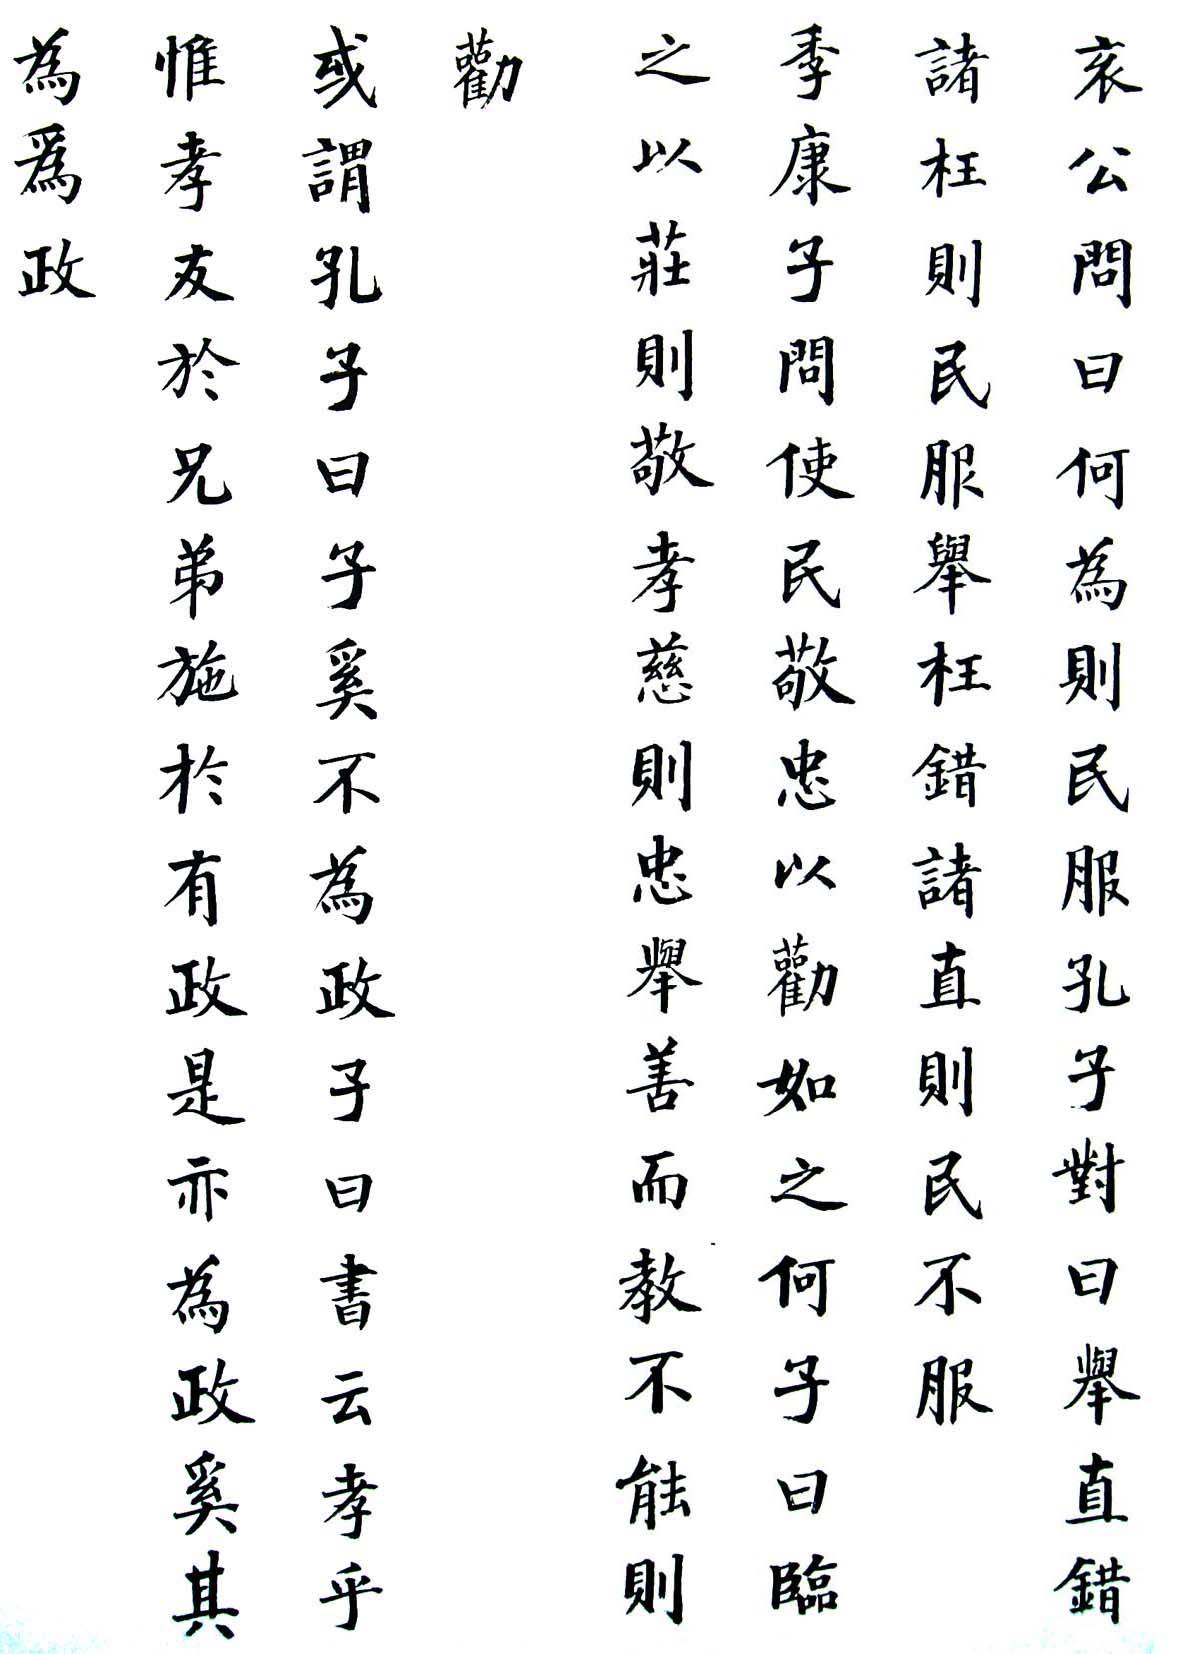 哀公問曰何為則民服孔子對曰舉直錯
諸枉則民服舉枉錯諸直則民不服
季康子問使民敬忠以勸如之何子曰臨
之以莊則敬孝慈則忠舉善而教不能則
勸
或謂孔子曰子奚不為政子曰書云孝乎
惟孝友於兄弟施於有政是亦為政奚其
為爲政